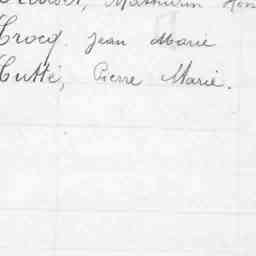 Mathurin
Crocq Jean Marie
Cutté, Pierre Marie.